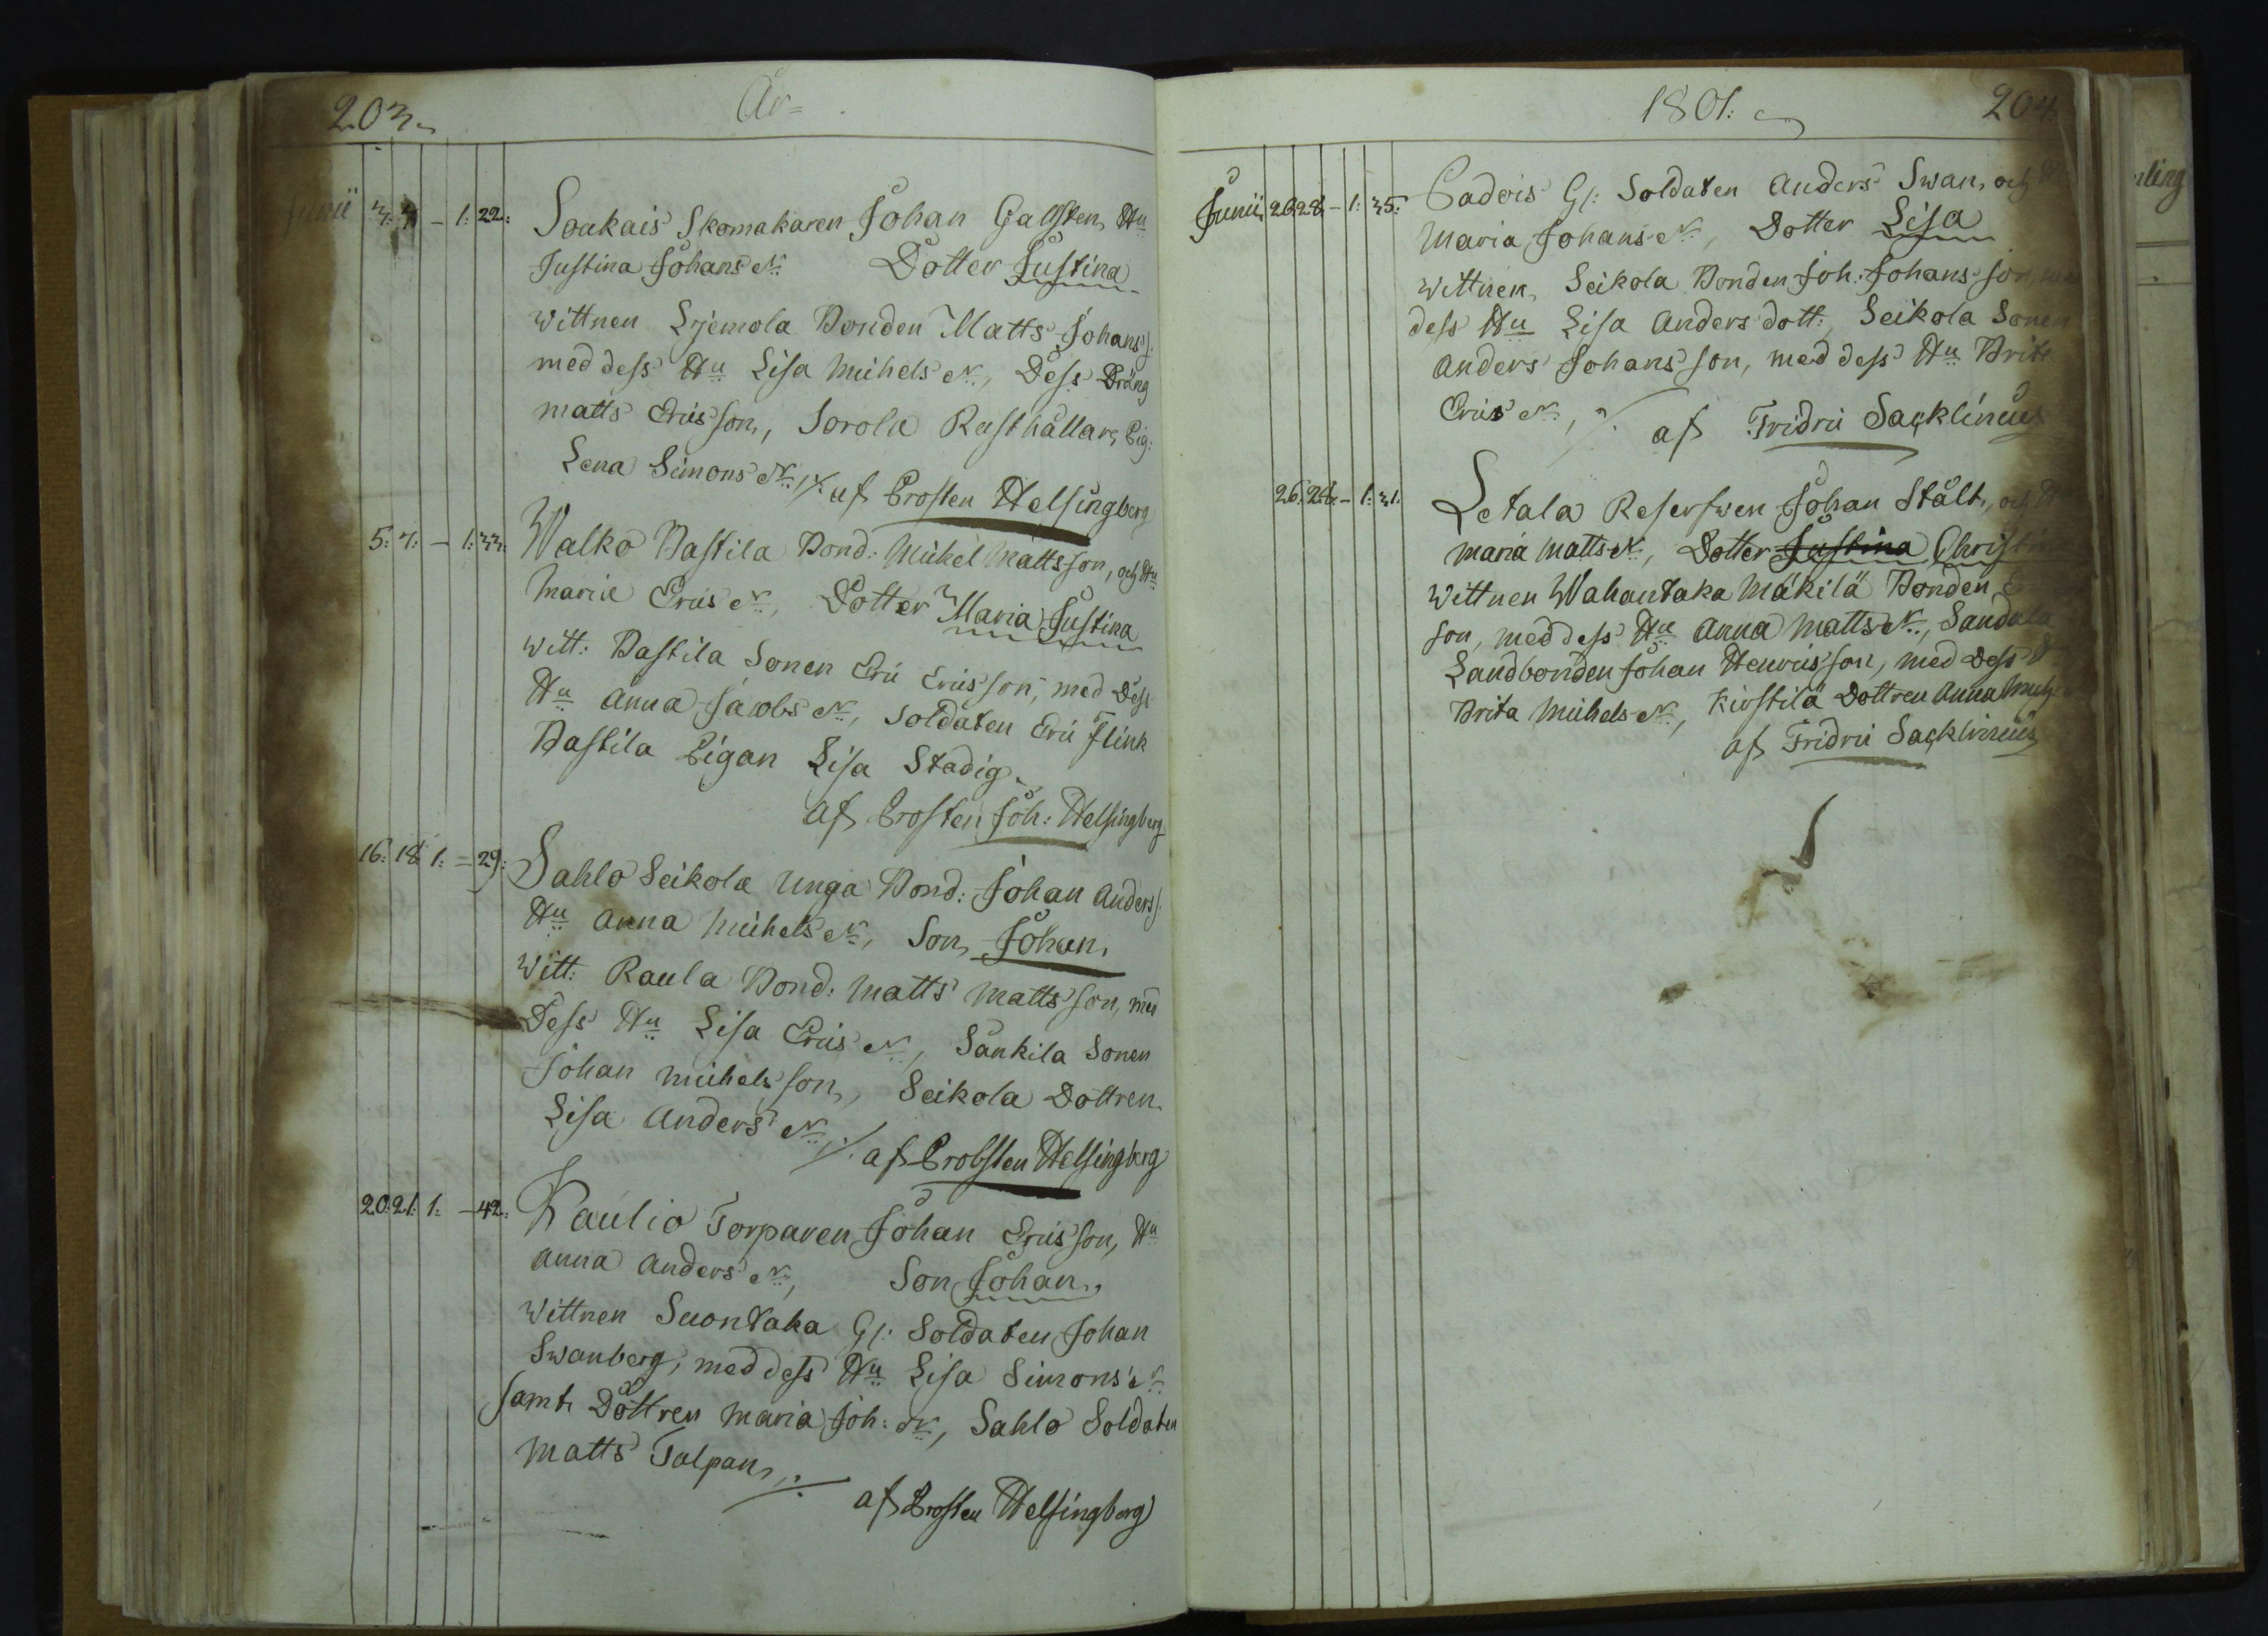 203.
År
Junii 3: 4 - 1: 22: Soukais Skomakaren Johan Galsten, Hu
Justina Johans dr. Dotter Justina
wittnen Lyemola Bonden Matts Johans s:
med dess Hu Lisa Michels dr, Dess Dräng
matts Erics son, Sorola Rusthållare Pig:
Lena Simons dr. ./. af Prosten Helsingberg
5: 7: - 1: 33: Walko Pastila Bond: Michel Mattsson, och Hu
Maria Erics dr, Dotter Maria Justina
witt: Pastila Sonen Eric Ericsson, med Dess
Hu Anna Jacobs dr, Soldaten Eric Flink
Pastila Pigan Lisa Stadig.
af Prosten Joh: Helsingberg
16: 18 1: = 29: Sahlo Seikola Unga Bond: Johan Anders s:
Hu Anna Michels dr, Son, Johan.
Witt: Raula Bond: Matts Matts son, med
Dess Hu Lisa Erics dr, Sankila Sonen
Johan Michels son, Seikola Dottren
Lisa Anders dr, ./. af Probsten Helsingberg
20: 21: 1: - 42: Kaulio Torparen Johan Ericsson, Hu
Anna Anders dr, Son Johan,
Wittnen Suontaka Gl: Soldaten Johan
Swanberg, med dess Hu Lisa Simons dr
samt Dottren Maria Joh: dr, Sahlo Soldaten
Matts Talpan, ./.
af Prosten Helsingberg
1801:
204
Junii 26 28 - 1: 35: Padois Gl: Soldaten Anders Swan, och
Maria Johans dr, Dotter Lisa
Wittnen, Seikola Bonden Joh: Johans son,
dess Hu Lisa Anders dott: Seikola Sonen
Anders Johans son, med dess Hu Brita
Erics dr, ./. af Fridric Sacklinius
26. 28. - 1: 31. Letala Reserfwen Johan Stålt, och
Maria Matts dr, Dotter Justina Christin
Wittnen Wahantaka Mäkilä Bonden
son, med dess Hu Anna Matts dr, Sandala
Landbonden Johan Henrics son, med Dess
Brita Michels dr, Kirstilä Dottren Anna
af Fridric Sacklinius